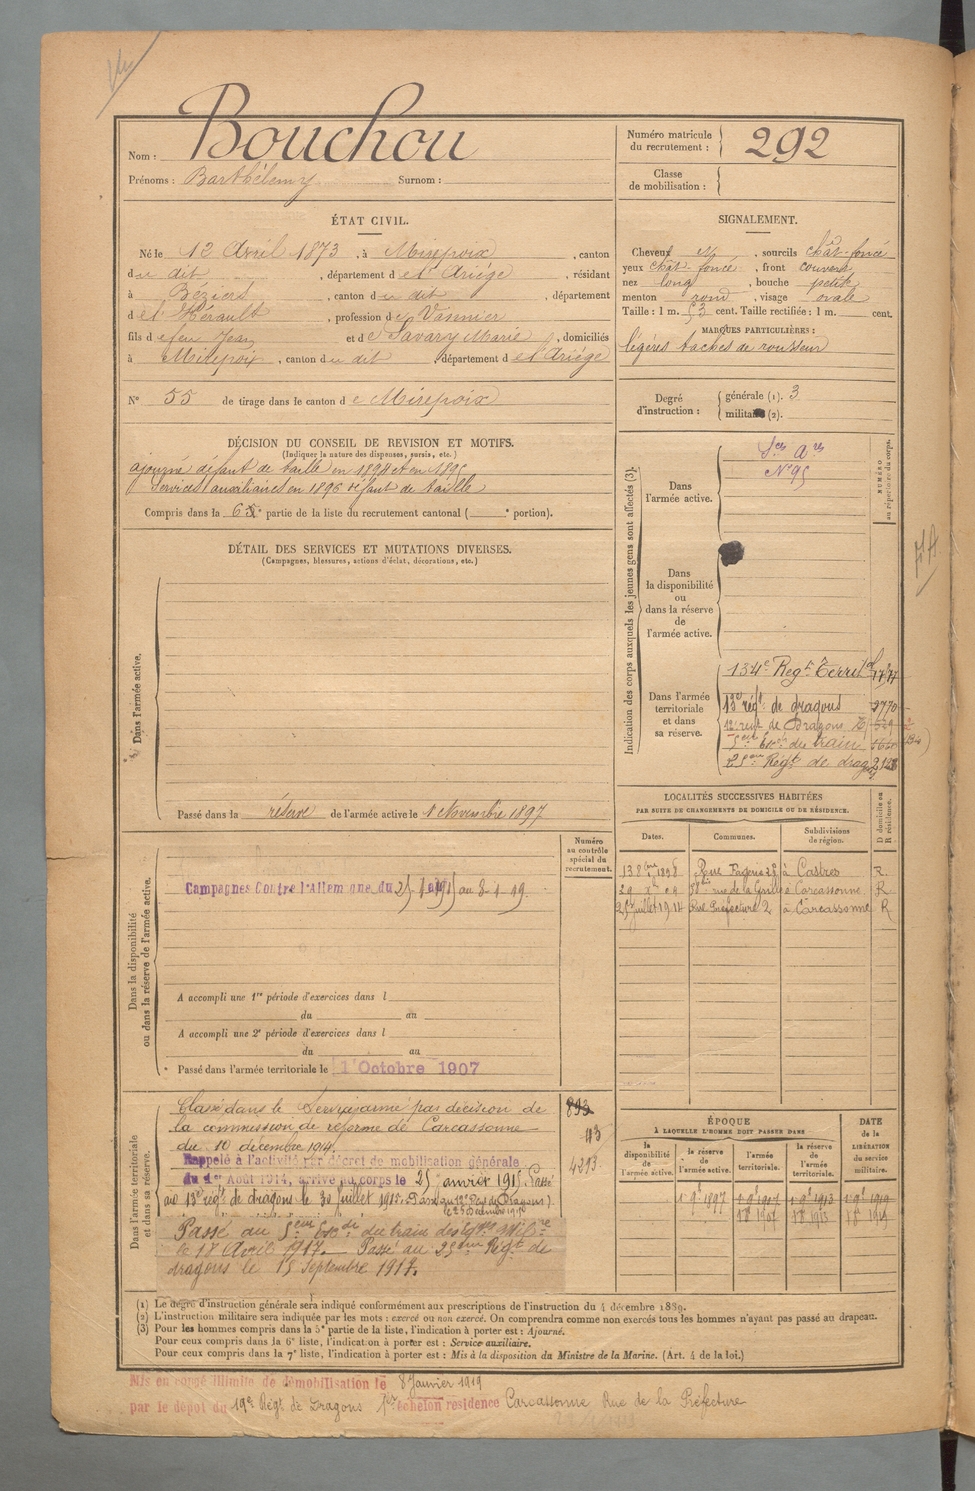 Nom : Bouchou
Prénoms : Barthélemy Surnom :
Numéro matricule du recrutement : 292
Classe de mobilisation :
ÉTAT CIVIL.
Né le 12 Avril 1873, à Mirepoix, canton
du dit, département de l'Ariège, résidant
à Béziers, canton du dit, département
de l'Hérault, profession de Vannier
fils de feu Jean et de Savary Marie, domiciliés
à Mirepoix, canton du dit département de l'Ariége
N° 55 de tirage dans le canton de Mirepoix
SIGNALEMENT.
Cheveux N, sourcils chât-foncé
yeux chât-foncé, front couvert
nez long, bouche petite
menton rond, visage ovale
Taille : 1 m. 53 cent. Taille rectifiée : 1 m. cent.
MARQUES PARTICULIÈRES :
légères taches de rousseur
Degré d'instruction : générale (1). 3
militaire (2).
DÉCISION DU CONSEIL DE REVISION ET MOTIFS.
(Indiquer la nature des dispenses, sursis, etc.)
ajourné défaut de taille en 1894 et en 1895
Services auxiliaires en 1896 défaut de taille
Compris dans la 6e partie de la liste du recrutement cantonal ( e portion).
DÉTAIL DES SERVICES ET MUTATIONS DIVERSES.
(Campagnes, blessures, actions d'éclat, décorations, etc.)
Dans l'armée active.
Passé dans la réserve de l'armée active le 1 Novembre 1897
Indication des corps auxquels les jeunes gens sont affectés (3).
NUMÉRO au répertoire du corps.
Dans l'armée active.
Sces Ares
N° 95
Dans la disponibilité ou dans la réserve de l'armée active.
Dans l'armée territoriale et dans sa réserve.
134e Regt Territal
13e régt de dragons 3770
12 regt de Dragons
5eme Eson du train
25eme Regt de dragons
LOCALITÉS SUCCESSIVES HABITÉES
PAR SUITE DE CHANGEMENTS DE DOMICILE OU DE RÉSIDENCE.
Dates. Communes. Subdivisions de région. D domicile ou R résidence.
13 8bre 1898 à Castres R.
29 Xbre 09 58 rue de la à Carcassonne R
25 juillet 1914 Rue Préfecture 2 à Carcassonne R
Dans la disponibilité ou dans la réserve de l'armée active.
Numéro au contrôle spécial du recrutement.
Campagnes Contre l'Allemagne du 25-1-1915 au 8-1-19.
A accompli une 1re période d'exercices dans l
du au
A accompli une 2e période d'exercices dans l
du au
Passé dans l'armée territoriale le 1er Octobre 1907
Dans l'armée territoriale et dans sa réserve.
Classé dans le Service armé par décision de
la commission de réforme de Carcassonne
du 10 décembre 1914.
Rappelé à l'activité par décret de mobilisation générale
du 1er Août 1914, arrivé au corps le 25 janvier 1915. Passé
au 13e régt de dragons le 30 juillet 1915. Passé au 12e Regt de Dragons
le 25 Décembre
Passé au 5eme Eson du train des
le 18 Avril 1917. Passé au 25eme Regt de
dragons le 15 Septembre 1917.
893
113
4293
ÉPOQUE
À LAQUELLE L'HOMME DOIT PASSER DANS
la disponibilité de l'armée active. la réserve de l'armée active. l'armée territoriale. la réserve de l'armée territoriale.
DATE de la LIBÉRATION du service militaire.
1 9e 1897 1 9e 1907 1 9e 1913 1 9e 1919
1 8e 1907 1 8e 1913 1 8e 1919
(1) Le degré d'instruction générale sera indiqué conformément aux prescriptions de l'instruction du 4 décembre 1889.
(2) L'instruction militaire sera indiquée par les mots : exercé ou non exercé. On comprendra comme non exercés tous les hommes n'ayant pas passé au drapeau.
(3) Pour les hommes compris dans la 5e partie de la liste, l'indication à porter est : Ajourné.
Pour ceux compris dans la 6e liste, l'indication à porter est : Service auxiliaire.
Pour ceux compris dans la 7e liste, l'indication à porter est : Mis à la disposition du Ministre de la Marine. (Art. 4 de la loi.)
Mis en congé illimité de démobilisation le 8 Janvier 1919
par le dépôt du 19e Régt de Dragons 1er échelon résidence Carcassonne Rue de la Préfecture